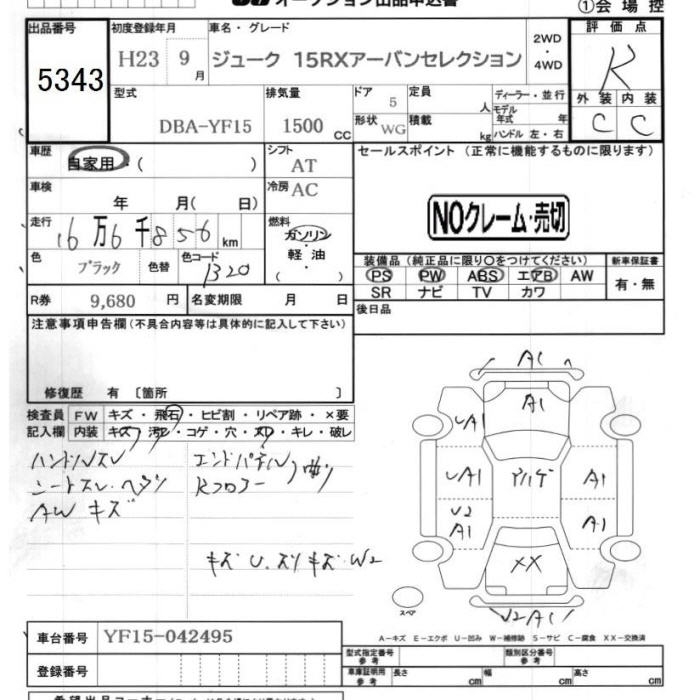 オークション出品申込書
①会場控
出品番号 初度登録年月 車名・グレード 2WD ・ 4WD 評価点
5343 H23 9月 ジューク 15RXアーバンセレクション R
型式 排気量 ドア 定員 ディーラー・並行 外装 内装
DBA-YF15 1500 cc 5 人 モデル年式 年 C C
形状 WG 積載 kg ハンドル 左・右
車歴 自家用 ( ) シフト AT セールスポイント (正常に機能するものに限ります)
車検 年 月( 日) 冷房 AC NOクレーム・売切
走行 16万6千856 km 燃料 ガソリン ・ 軽油 ( )
色 ブラック 色替 色コード B20 装備品 (純正品に限り○をつけてください) 新車保証書
PS PW ABS エアB AW 有・無
SR ナビ TV カワ
R券 9,680 円 名変期限 月 日 後日品
注意事項申告欄(不具合内容等は具体的に記入して下さい)
修復歴 有 〔箇所 〕
検査員 FW キズ・飛石・ヒビ割・リペア跡・×要
記入欄 内装 キズ・汚レ・コゲ・穴・スレ・キレ・破レ
ハンドルスレ エンドパネル
シートスレ・ヘタリ Rフロアー 曲り
AW キズ
キズ U.スリキズ.W2
A1
A1
A1
A1 A1
U2 A1 A1
XX
スペア
U2 A1
A-キズ E-エクボ U-凹み W-補修跡 S-サビ C-腐食 XX-交換済
車台番号 YF15-042495
型式指定番号 参考 類別区分番号 参考
登録番号 車庫証明用 参考 長さ cm 幅 cm 高さ cm